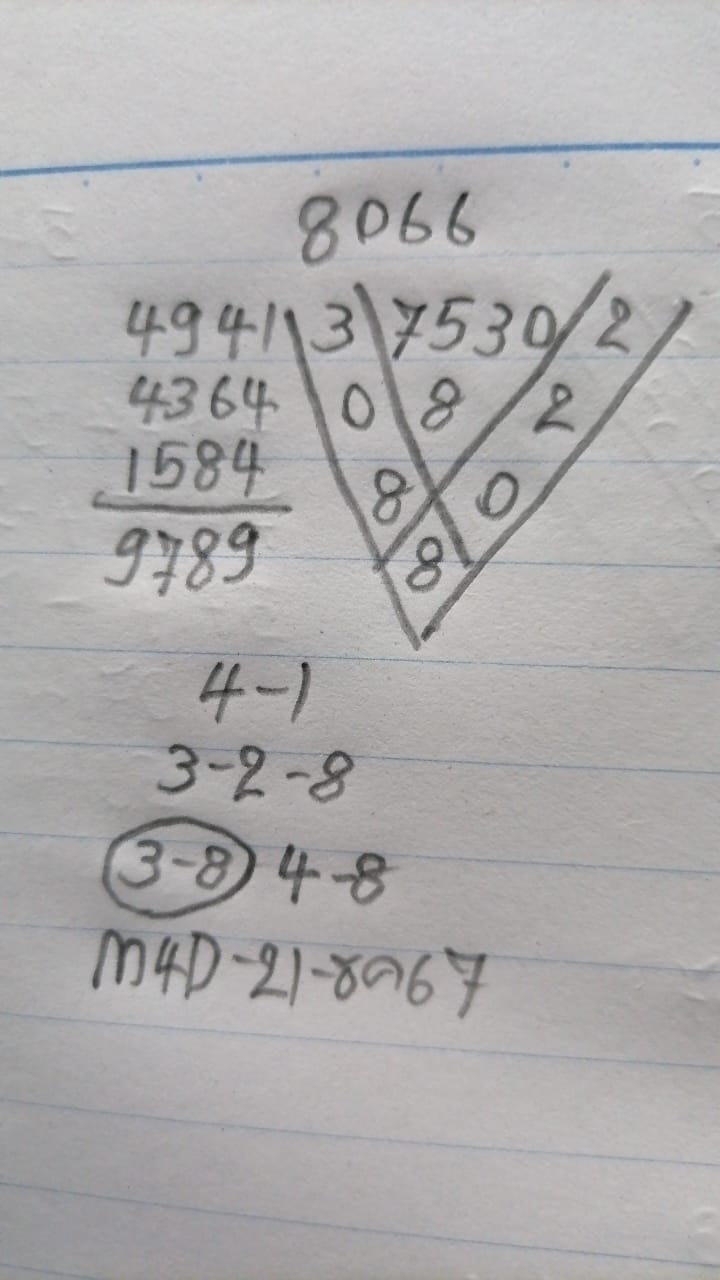 8066
4941 3 7530 2
4364 0 8 2
1584 8 0
9789 8
4-1
3-2-8
3-8 4-8
M4D-21-ชค67